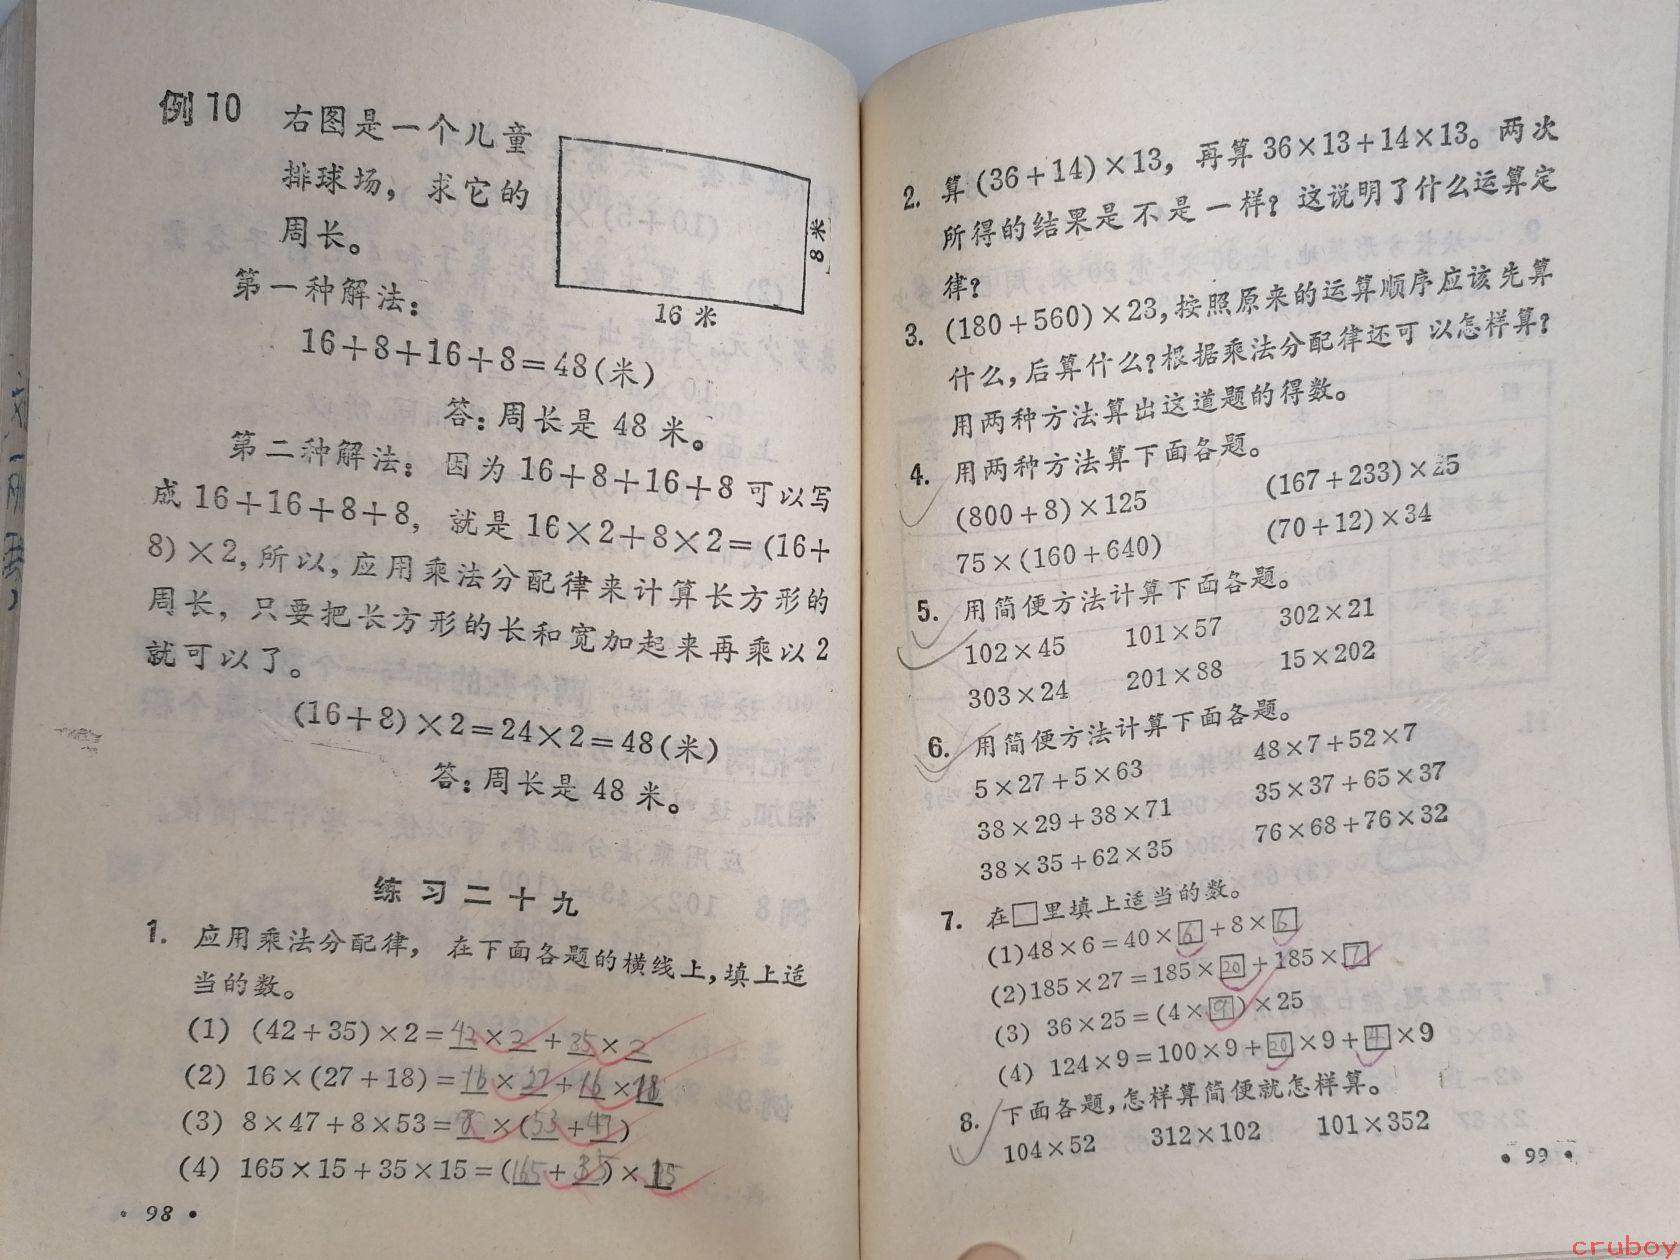 例10 右图是一个儿童
排球场，求它的
周长。
8米
16米
第一种解法：
16+8+16+8=48(米)
答：周长是48米。
第二种解法：因为16+8+16+8可以写
成16+16+8+8，就是16×2+8×2=(16+
8)×2，所以，应用乘法分配律来计算长方形的
周长，只要把长方形的长和宽加起来再乘以2
就可以了。
(16+8)×2=24×2=48(米)
答：周长是48米。
练习二十九
1. 应用乘法分配律，在下面各题的横线上，填上适
当的数。
(1) (42+35)×2=42×2+35×2
(2) 16×(27+18)=16×27+16×18
(3) 8×47+8×53=8×(53+47)
(4) 165×15+35×15=(165+35)×15
• 98 •
2. 算(36+14)×13，再算36×13+14×13。两次
所得的结果是不是一样？这说明了什么运算定
律？
3. (180+560)×23，按照原来的运算顺序应该先算
什么，后算什么？根据乘法分配律还可以怎样算？
用两种方法算出这道题的得数。
4. 用两种方法算下面各题。
(800+8)×125 (167+233)×25
75×(160+640) (70+12)×34
5. 用简便方法计算下面各题。
102×45 101×57 302×21
303×24 201×88 15×202
6. 用简便方法计算下面各题。
5×27+5×63 48×7+52×7
38×29+38×71 35×37+65×37
38×35+62×35 76×68+76×32
7. 在□里填上适当的数。
(1)48×6=40×6+8×6
(2)185×27=185×20+185×7
(3) 36×25=(4×9)×25
(4) 124×9=100×9+20×9+4×9
8. 下面各题，怎样算简便就怎样算。
104×52 312×102 101×352
• 99 •
cruboy